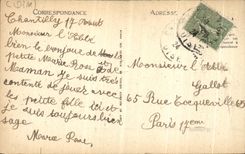 CORRESPONDANCE
ADRESSE
Chantilly 17 Aout
Monsieur l'Abbé
bien le bonjour de la
petite Marie Rose et de
Maman je suis très
contente de jouer avec
les petite fille ici et
je suis toujours bien
sage
Marie Rose
Monsieur l'Abbé
Gallot
65 Rue Tocqueville 65
Paris